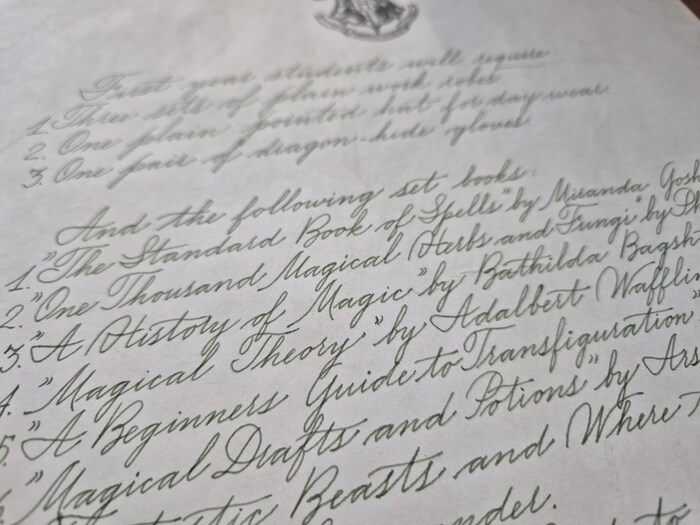 First year students will require
1. Three sets of plain work robes
2. One plain pointed hat for day wear.
3. One pair of dragon-hide gloves
And the following set books:
1. "The Standard Book of Spells" by Miranda Gosh
2. "One Thousand Magical Herbs and Fungi" by Ph
3. "A History of Magic" by Bathilda Bagsh
4. "Magical Theory" by Adalbert Wafflin
5. "A Beginners Guide to Transfiguration"
"Magical Drafts and Potions" by Ars
Beasts and Where